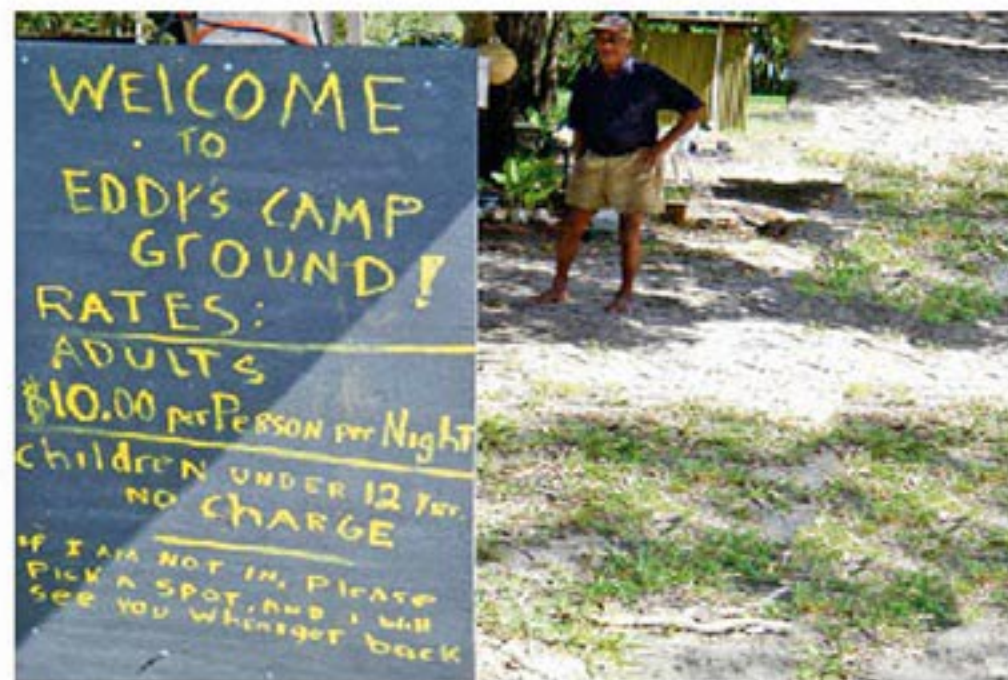 WElCOME
TO
EDDY's CAMP
GROUND!
RATES:
ADULTS
$10.00 per Person per Night
Children UNDER 12 Yrs.
NO ChARGE
IF I AM NOT IN, Please
Pick A SPOT, AND I will
see You When I get back